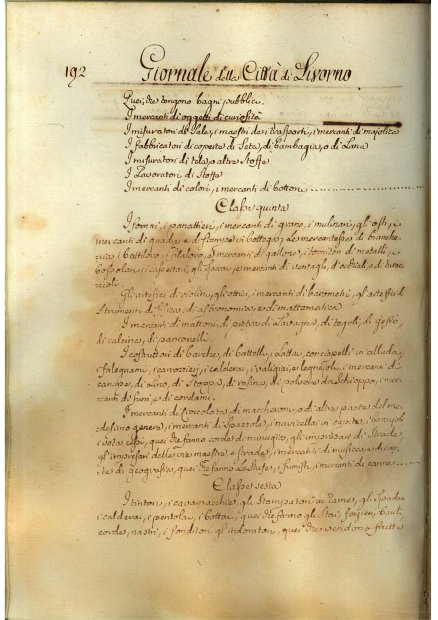 192
Giornale della Città di Livorno
Quei, che tengono bagni pubblici.
I mercanti di oggetti di curiosità
I misuratori di Sale, i maestri dei trasporti, i mercanti di majolica
I fabbricatori di coperte di Seta, di bambagia, o di Lana
I misuratori di tela, o altre Stoffe
I Lavoratori di Stoffe
I mercanti di colori, i mercanti di bottoni
Classe quinta
I fornai, i panattieri, i mercanti di grano, i mulinari, gli osti, i
mercanti di quadri e di stampe in bottega; Le mercantesse di bianche-
i mercanti di galloni, i tornitori di metalli, i
i mercanti di ventagli, d'occhiali, e di
Gli artefici di violini, gli ottici, i mercanti di barometri, gli artefici di
Strumenti di fisica, di astronomia, e di mattematica
I mercanti di mattoni, di pietra di Lavagna, di tegoli, di gesso,
di calcina, di panconcelli
I costruttori di barche, di battelli,
i falegnami, i carrozzieri, i calderai, i valigiai, i mercanti di
canape, di Lino, di Stoppa, di resina, di polvere da Schioppo, i mer-
canti di funi, e di cordami.
I mercanti di Cioccolata, di maccheroni, o di altre paste del me-
desimo genere, i mercanti di Spazzole, i navicellai
quei che fanno corde di minugia, gli impresari di Strade
gli impresari delle vie maestre e strade, i mercanti di musica, e di car-
te di geografia, quei che fanno Le Stufe, i fumisti, i mercanti di canne
Classe sesta
I tintori, i cavamacchie, gli Stampatori in rame, gli Spadai
i calderai, i pentolai, i bottai, quei che fanno gli Stai, forzieri, bauli
corde, nastri, i fonditori, gl'indoratori, quei che vendono frutte